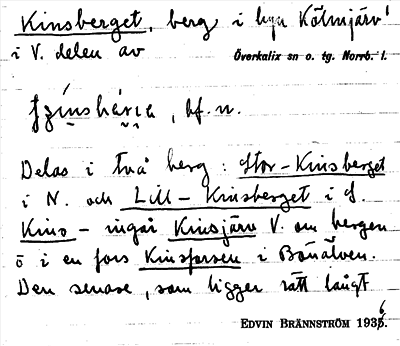 Kinsberget, berg i byn Kölmjärv
i V. delen av Överkalix sn o. tg. Norrb. l.
bf. n.
Delas i två berg: Stor-Kinsberget
i N. och Lill-Kinsberget i S.
Kins- ingår Kinsjärv V. om bergen
o i en fors Kinsforsen i Bönälven.
Den senare, som ligger rätt långt
EDVIN BRÄNNSTRÖM 1936.